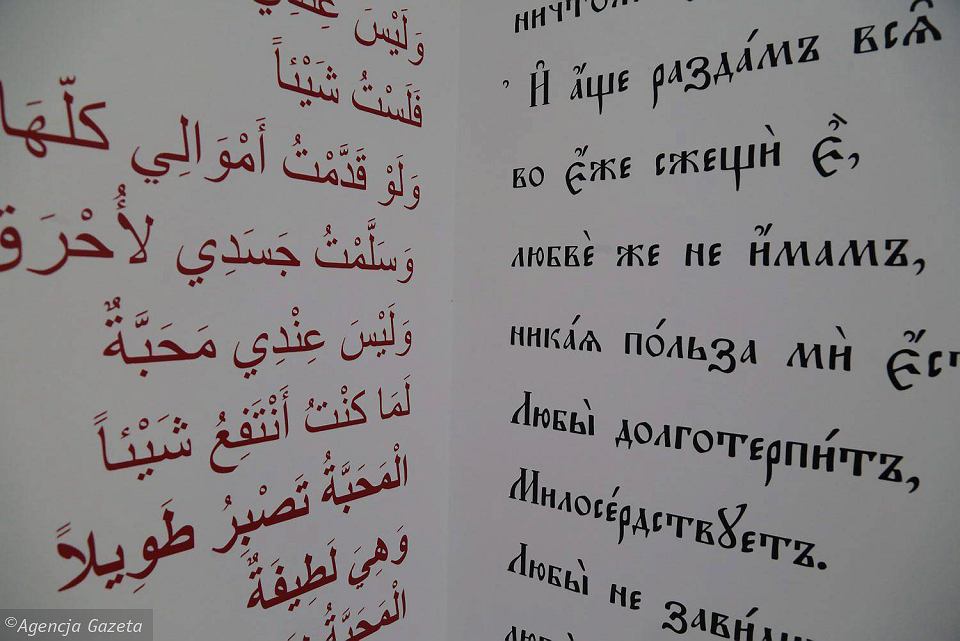 وَلَيْسَ عِنْدِي
فَلَسْتُ شَيْئاً
وَلَوْ قَدَّمْتُ أَمْوَالِي كلّهَا
وَسَلَّمْتُ جَسَدِي لأُحْرَق
وَلَيْسَ عِنْدِي مَحَبَّةٌ
لَمَا كنْتُ أَنْتَفِعُ شَيْئاً
الْمَحَبَّةُ تَصْبِرُ طَوِيلاً
وَهِيَ لَطِيفَةٌ
الْمَحَبَّةُ
И҆ а҆́ще разда́мъ всѧ̑
во є҆́же сжещѝ є҆̀,
любвѐ же не и҆́мамъ,
никáѧ по́льза мѝ є҆́ст
Любы̀ долготерпи́тъ,
Милосе́рдствꙋетъ.
Любы̀ не зави́
©Agencja Gazeta